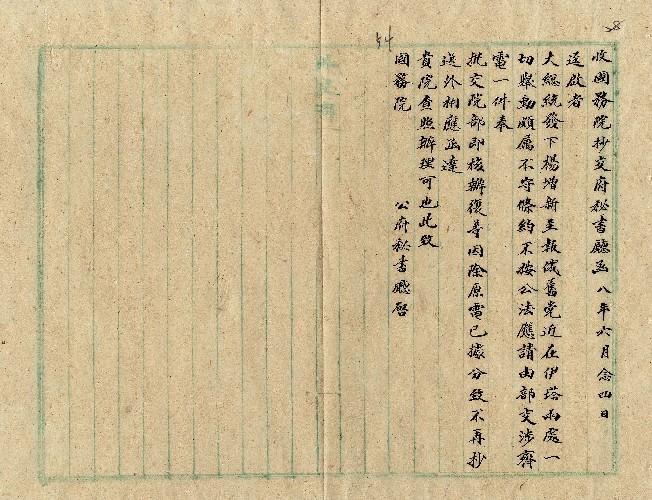 收國務院抄交府秘書廳函 八年六月念四日
逕啟者
大總統發下楊增新呈報俄舊党近在伊塔兩處一
切舉動頗屬不守條約不按公法應請由部交涉齊
電一件奉
批交院部即核辦復等因除原電已據分致不再抄
送外相應函達
貴院查照辦理可也此致
國務院
公府秘書廳啓
54
28